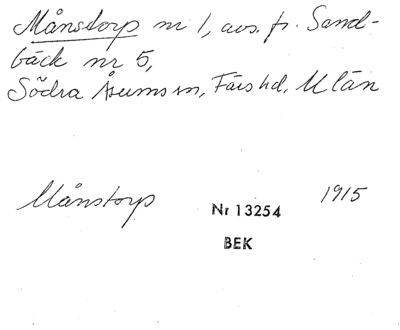 Månstorp nr 1, avs. fr. Sand-
bäck nr 5,
Södra Åsums sn, Färs hd, M län
Månstorp
Nr 13254
1915
BEK